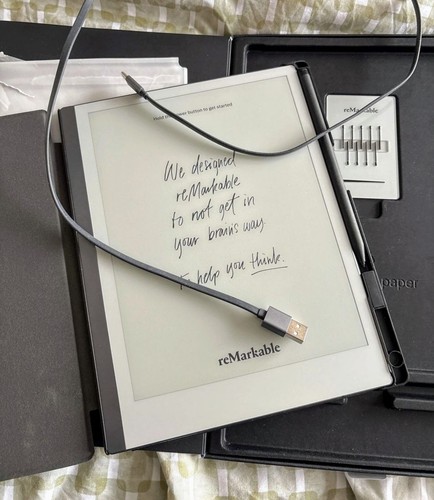 Hold the power button to get started
We designed
reMarkable
to not get in
your brains way.
To help you think.
reMarkable
reMarkable
paper